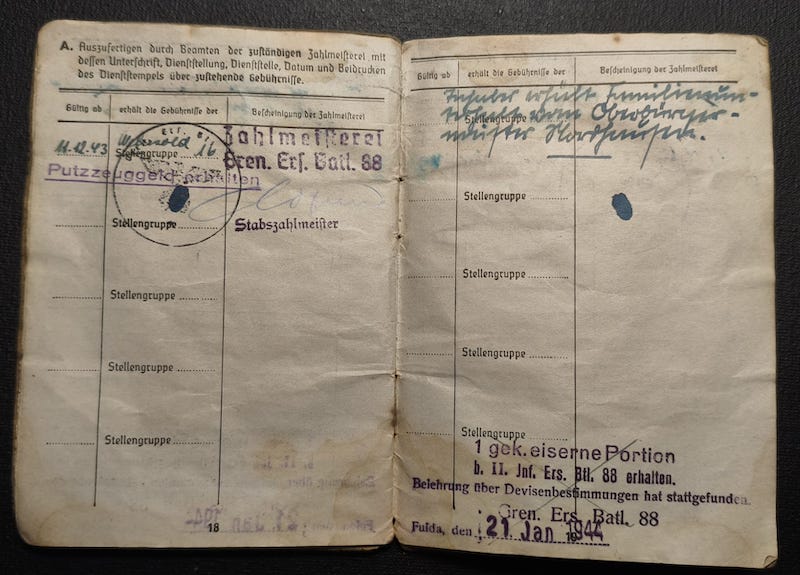 A. Auszufertigen durch Beamten der zuständigen Zahlmeisterei mit
dessen Unterschrift, Dienststellung, Dienststelle, Datum und Beidrucken
des Dienststempels über zustehende Gebührnisse.
Gültig ab erhält die Gebührnisse der Bescheinigung der Zahlmeisterei
11.12.43 Wehrsold 16
Stellengruppe
Zahlmeisterei
Gren. Ers. Batl. 88
Putzzeuggeld erhalten
Stellengruppe ........ Stabszahlmeister
Stellengruppe ........
Stellengruppe ........
Stellengruppe ........
18
Gültig ab erhält die Gebührnisse der Bescheinigung der Zahlmeisterei
Inhaber erhielt Familienun-
terhalt vom Oberbürger-
meister Nordhausen.
Stellengruppe
Stellengruppe ........
Stellengruppe ........
Stellengruppe ........
Stellengruppe ........
1 gek. eiserne Portion
b. II. Inf. Ers. Btl. 88 erhalten.
Belehrung über Devisenbestimmungen hat stattgefunden.
Gren. Ers. Batl. 88
Fulda, den 21. Jan 1944